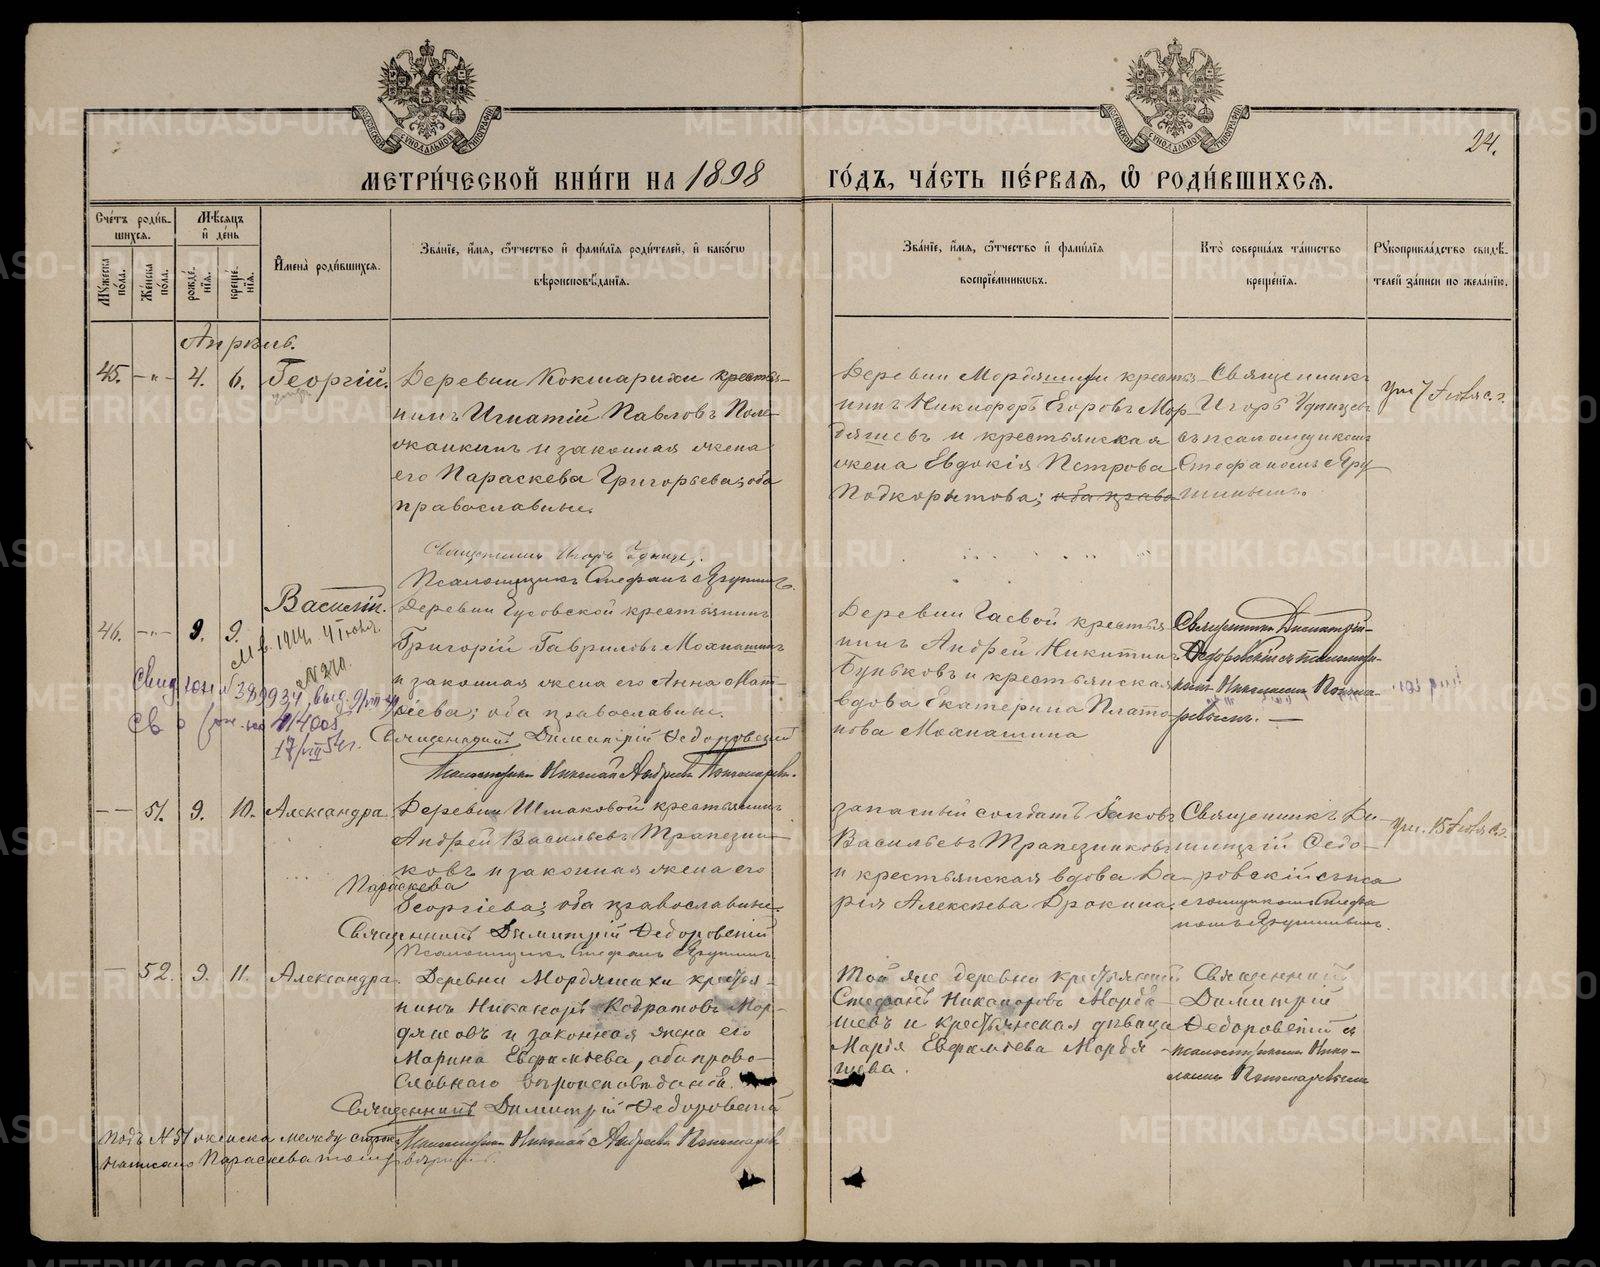 24.
МЕТРИ́ЧЕСКОЙ КНИ́ГИ НА 1898 ГО́ДЪ, ЧА́СТЬ ПЕ́РВАЯ, Ѡ РОДИ́ВШИХСЯ.
Сче́тъ роди́в-
шихся.
Мѣ́сяцъ
и де́нь
Му́жеска по́ла.
Же́нска по́ла.
рожде́нїя.
креще́нїя.
И҆мена̀ роди́вшихся.
Зва́нїе, и́мя, ѻ҆́тчество и҆ фами́лїя роди́телей, и҆ како́гѡ
вѣроисповѣ́данїя.
Зва́нїе, и́мя, ѻ҆́тчество и҆ фами́лїя
воспрїе́мниковъ.
Кто̀ соверша́лъ та́инство
креще́нїя.
Рукоприкла́дство свидѣ́-
телей за́писи по жела́нїю.
Апрѣль.
45. — „ — 4. 6. Георгій.
Деревни Кокшарихи крестья-
нинъ Игнатій Павловъ Поле-
жанкинъ и законная жена
его Параскева Григорьева; оба
православные.
Священникъ Игорь Удинцевъ
Псаломщикъ Стефанъ Ярушинъ.
Деревни Мордяшихи крестья-
нинъ Никифоръ Егоровъ Мор-
дяшевъ и крестьянская
жена Евдокія Петрова
Подкорытова; оба право
Священникъ
Игорь Удинцевъ
съ псаломщикомъ
Стефаномъ Яру-
шинымъ.
Ум 7 Іюля с. г.
46. — „ — 9. 9. Василій.
М в. 1914 г. 4 Іюня
№ 270.
Деревни Гусовской крестьянинъ
Григорій Гавриловъ Мохнашинъ
и законная жена его Анна Мат-
ѳіева; оба православные.
Священникъ Димитрій Ѳедоровскій
Псаломщикъ Николай Андреевъ Пономаревъ.
№ 389934, выд. 9/VII
№ 414005
17/VII 54 г.
Деревни Гаевой крестья
нинъ Андрей Никитинъ
Буньковъ и крестьянская
вдова Екатерина Плато-
нова Мохнашина
Священникъ Димитрій
Ѳедоровскій съ псаломщи-
комъ Николаемъ Понома-
ревымъ. —
— — 51. 9. 10. Александра.
Деревни Шмаковой крестьянинъ
Андрей Васильевъ Трапезни-
ковъ и законная жена его
Параскева
Георгіева; оба православные.
Священникъ Димитрій Ѳедоровскій
Псаломщикъ Стефанъ Ярушинъ
запасный солдатъ Іаковъ
Васильевъ Трапезниковъ
и крестьянская вдова Да-
рія Алексѣева Дрокина.
Священникъ Ди-
митрій Ѳедо-
ровскій съ пса
ломщикомъ Стефа
номъ Ярушинымъ.
Ум. 15 Іюля с. г.
— 52. 9. 11. Александра
Деревни Мордяшихи крестья-
нинъ Никаноръ Кодратовъ Мор-
дяшовъ и законная жена его
Марина Евфимiева, оба право-
славнаго вѣроисповѣданія.
Священникъ Димитрій Ѳедоровскій
Псаломщикъ Николай Андреевъ Пономаревъ
Той же деревни крестьянинъ
Стефанъ Никаноровъ Мордя-
шевъ и крестьянская дѣвица
Марія Евфимiева Мордя-
шева.
Священникъ
Димитрій
Ѳедоровскій съ
псаломщикомъ Нико-
лаемъ Пономаревымъ
Подъ № 51 женска между строкъ
написано Параскева тому вѣрить.
METRIKI.GASO-URAL.RU